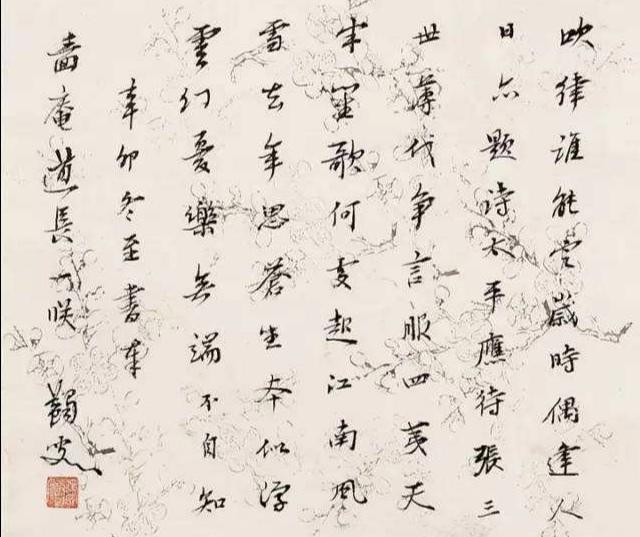 吹律誰能變歲時偶逢人
日亦題詩太平應待張三
世薄伐爭言服四夷天
半笙歌何處起江南風
雪去年思蒼生本似浮
雲幻憂樂無端不自知
辛卯冬至書奉
嗇庵道長一咲 蠲叟